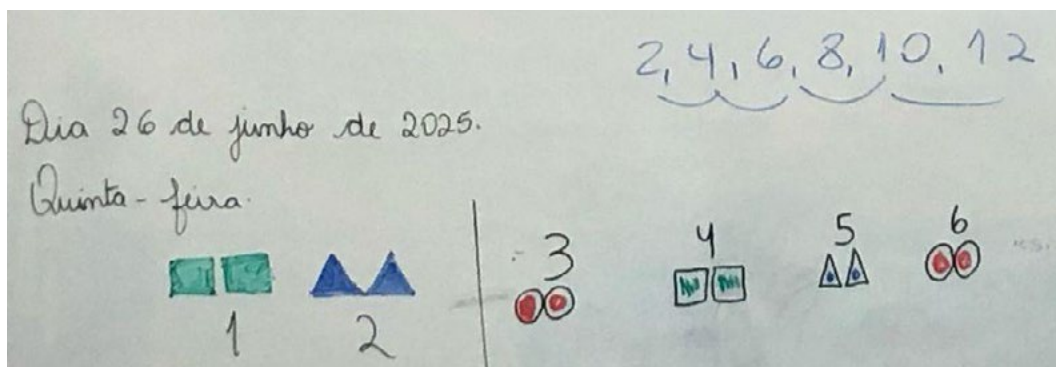 2, 4, 6, 8, 10, 12
Dia 26 de junho de 2025.
Quinta-feira.
3 4 5 6
1 2